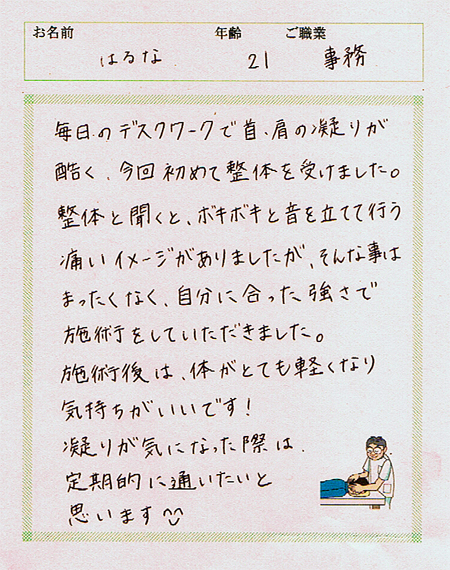 お名前 年齢 ご職業
はるな 21 事務
毎日のデスクワークで首、肩の凝りが
酷く、今回初めて整体を受けました。
整体と聞くと、ボキボキと音を立てて行う
痛いイメージがありましたが、そんな事は
まったくなく、自分に合った強さで
施術をしていただきました。
施術後は、体がとても軽くなり
気持ちがいいです!
凝りが気になった際は
定期的に通いたいと
思います